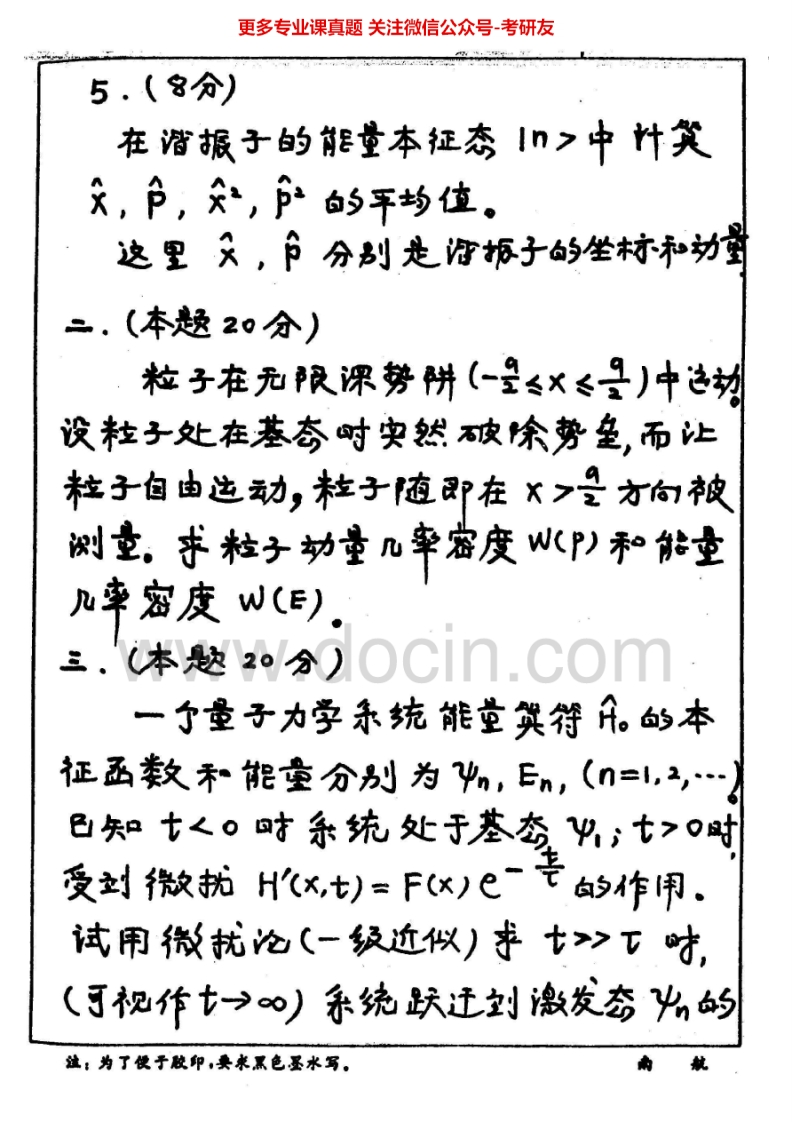 更多专业课真题 关注微信公众号-考研友
5.(8分)
在谐振子的能量本征态 |n> 中计算
x̂, p̂, x̂², p̂² 的平均值。
这里 x̂, p̂ 分别是谐振子的坐标和动量.
二.(本题20分)
粒子在无限深势阱(-a/2≤x≤a/2)中运动。
设粒子处在基态时突然破除势垒,而让
粒子自由运动,粒子随即在 x>a/2 方向被
测量。求粒子动量几率密度 W(p) 和能量
几率密度 W(E).
www.docin.com
三.(本题20分)
一个量子力学系统能量算符 Ĥ₀ 的本
征函数和能量分别为 ψn, En, (n=1,2,…)。
已知 t<0 时系统处于基态 ψ₁; t>0时,
受到微扰 H'(x,t)=F(x)e^{-t/τ} 的作用.
试用微扰论(一级近似)求 t>>τ 时,
(可视作 t→∞) 系统跃迁到激发态 ψn 的
注:为了便于胶印,要求黑色墨水写。 南 航